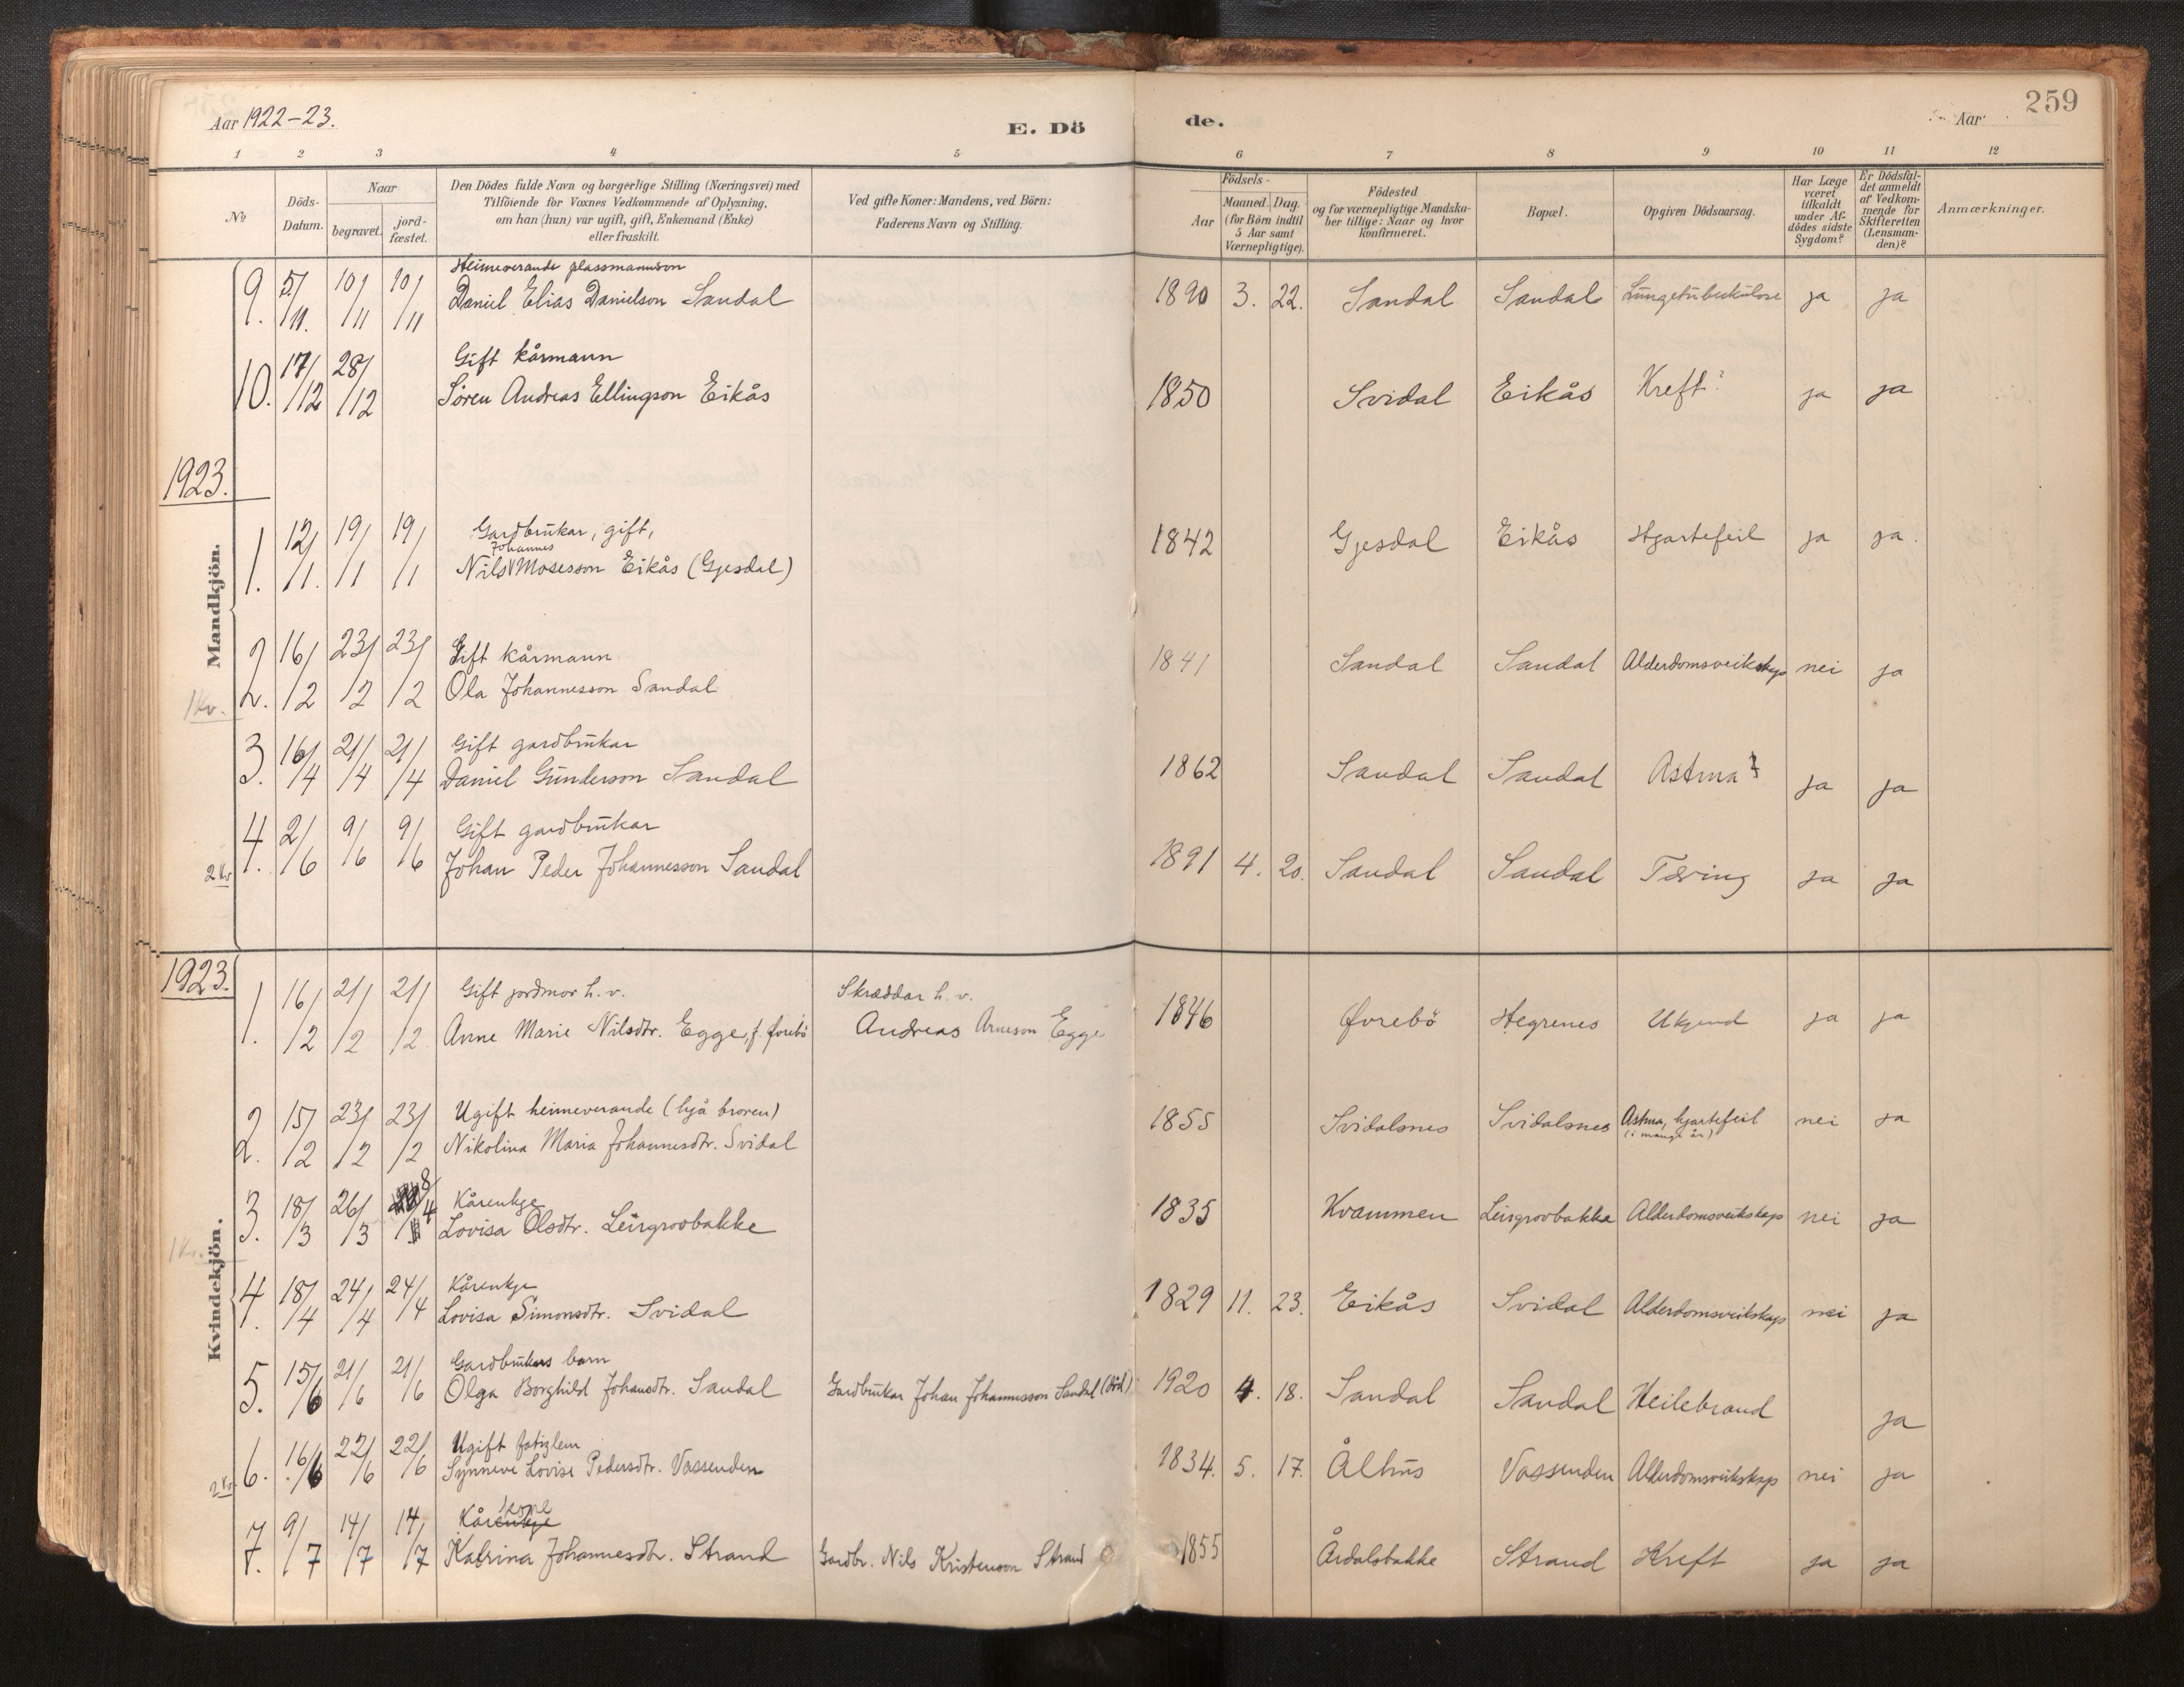 Aar 1922–23.
E. Dö
de.
Aar
259
1 2 3 4 5 6 7 8 9 10 11 12
No
Döds-Datum.
Naar
begravet.
jord-fæstet.
Den Dödes fulde Navn og borgerlige Stilling (Næringsvei) med
Tilföiende for Voxnes Vedkommende af Oplysning,
om han (hun) var ugift, gift, Enkemand (Enke)
eller fraskilt.
Ved gifte Koner: Mandens, ved Börn:
Faderens Navn og Stilling.
Födsels-
Aar
Maaned. Dag.
(for Börn indtil
5 Aar samt
Værnepligtige).
Födested
og for værnepligtige Mandska-
ber tillige: Naar og hvor
konfirmeret.
Bopæl.
Opgiven Dödsaarsag.
Har Læge
været
tilkaldt
under Af-
dödes sidste
Sygdom?
Er Dödsfal-
det anmeldt
af Vedkom-
mende for
Skifteretten
(Lensman-
den)?
Anmærkninger.
Mandkjön.
Heimeverande plassmannson
9. 5/11. 10/11 10/11 Daniel Elias Danielson Sandal 1890 3. 22. Sandal Sandal Lungetuberkulose ja ja
Gift kårmann
10. 17/12 28/12 Sören Andreas Ellingson Eikås 1850 Svidal Eikås Kreft? ja ja
1923.
Gardbrukar, gift,
Johannes
1. 12/1. 19/1 19/1 Nils Mosesson Eikås (Gjesdal) 1842 Gjesdal Eikås Hjartefeil ja ja.
Gift kårmann
2. 16/2 23/2 23/2 Ola Johannesson Sandal 1841 Sandal Sandal Alderdomsveikskap nei ja
1 Kv.
Gift gardbrukar
3. 16/4 21/4 21/4 Daniel Gunderson Sandal 1862 Sandal Sandal Astma ? ja ja
Gift gardbrukar
4. 2/6 9/6 9/6 Johan Peder Johannesson Sandal 1891 4. 20. Sandal Sandal Tæring ja ja
2 Kv
1923.
Kvindekjön.
Gift jordmor h. v. Skræddar h. v.
1. 16/2 21/2 21/2 Anne Marie Nilsdtr. Egge, f. Øvrebö Andreas Arneson Egge 1846 Øvrebö Hegrenes Ukjend ja ja
Ugift heimeverande (hjå broren)
2. 15/2 23/2 23/2 Nikolina Maria Johannesdtr. Svidal 1855 Svidalsnes Svidalsnes Astma, hjartefeil nei ja
(i mange år)
Kårenkje
3. 18/3 26/3 8/4 Lovisa Olsdtr. Leirgrovbakke 1835 Kvammen Leirgrovbakke Alderdomsveikskap nei ja
1 Kv.
Kårenkje
4. 18/4 24/4 24/4 Lovisa Simonsdtr. Svidal 1829 11. 23. Eikås Svidal Alderdomsveikskap nei ja
Gardbrukars barn
5. 15/6 21/6 21/6 Olga Borghild Johansdtr. Sandal Gardbrukar Johan Johannesson Sandal (död) 1920 4. 18. Sandal Sandal Heilebrand ja
Ugift fatiglem
6. 16/6 22/6 22/6 Synneve Lovise Pedersdtr. Vassenden 1834. 5. 17. Ålhus Vassenden Alderdomsveikskap nei ja
2 Kv.
kone
Kårenkje
7. 9/7 14/7 14/7 Katrina Johannesdtr. Strand Gardbr. Nils Kristenson Strand 1855 Årdalsbakke Strand Kreft ja ja